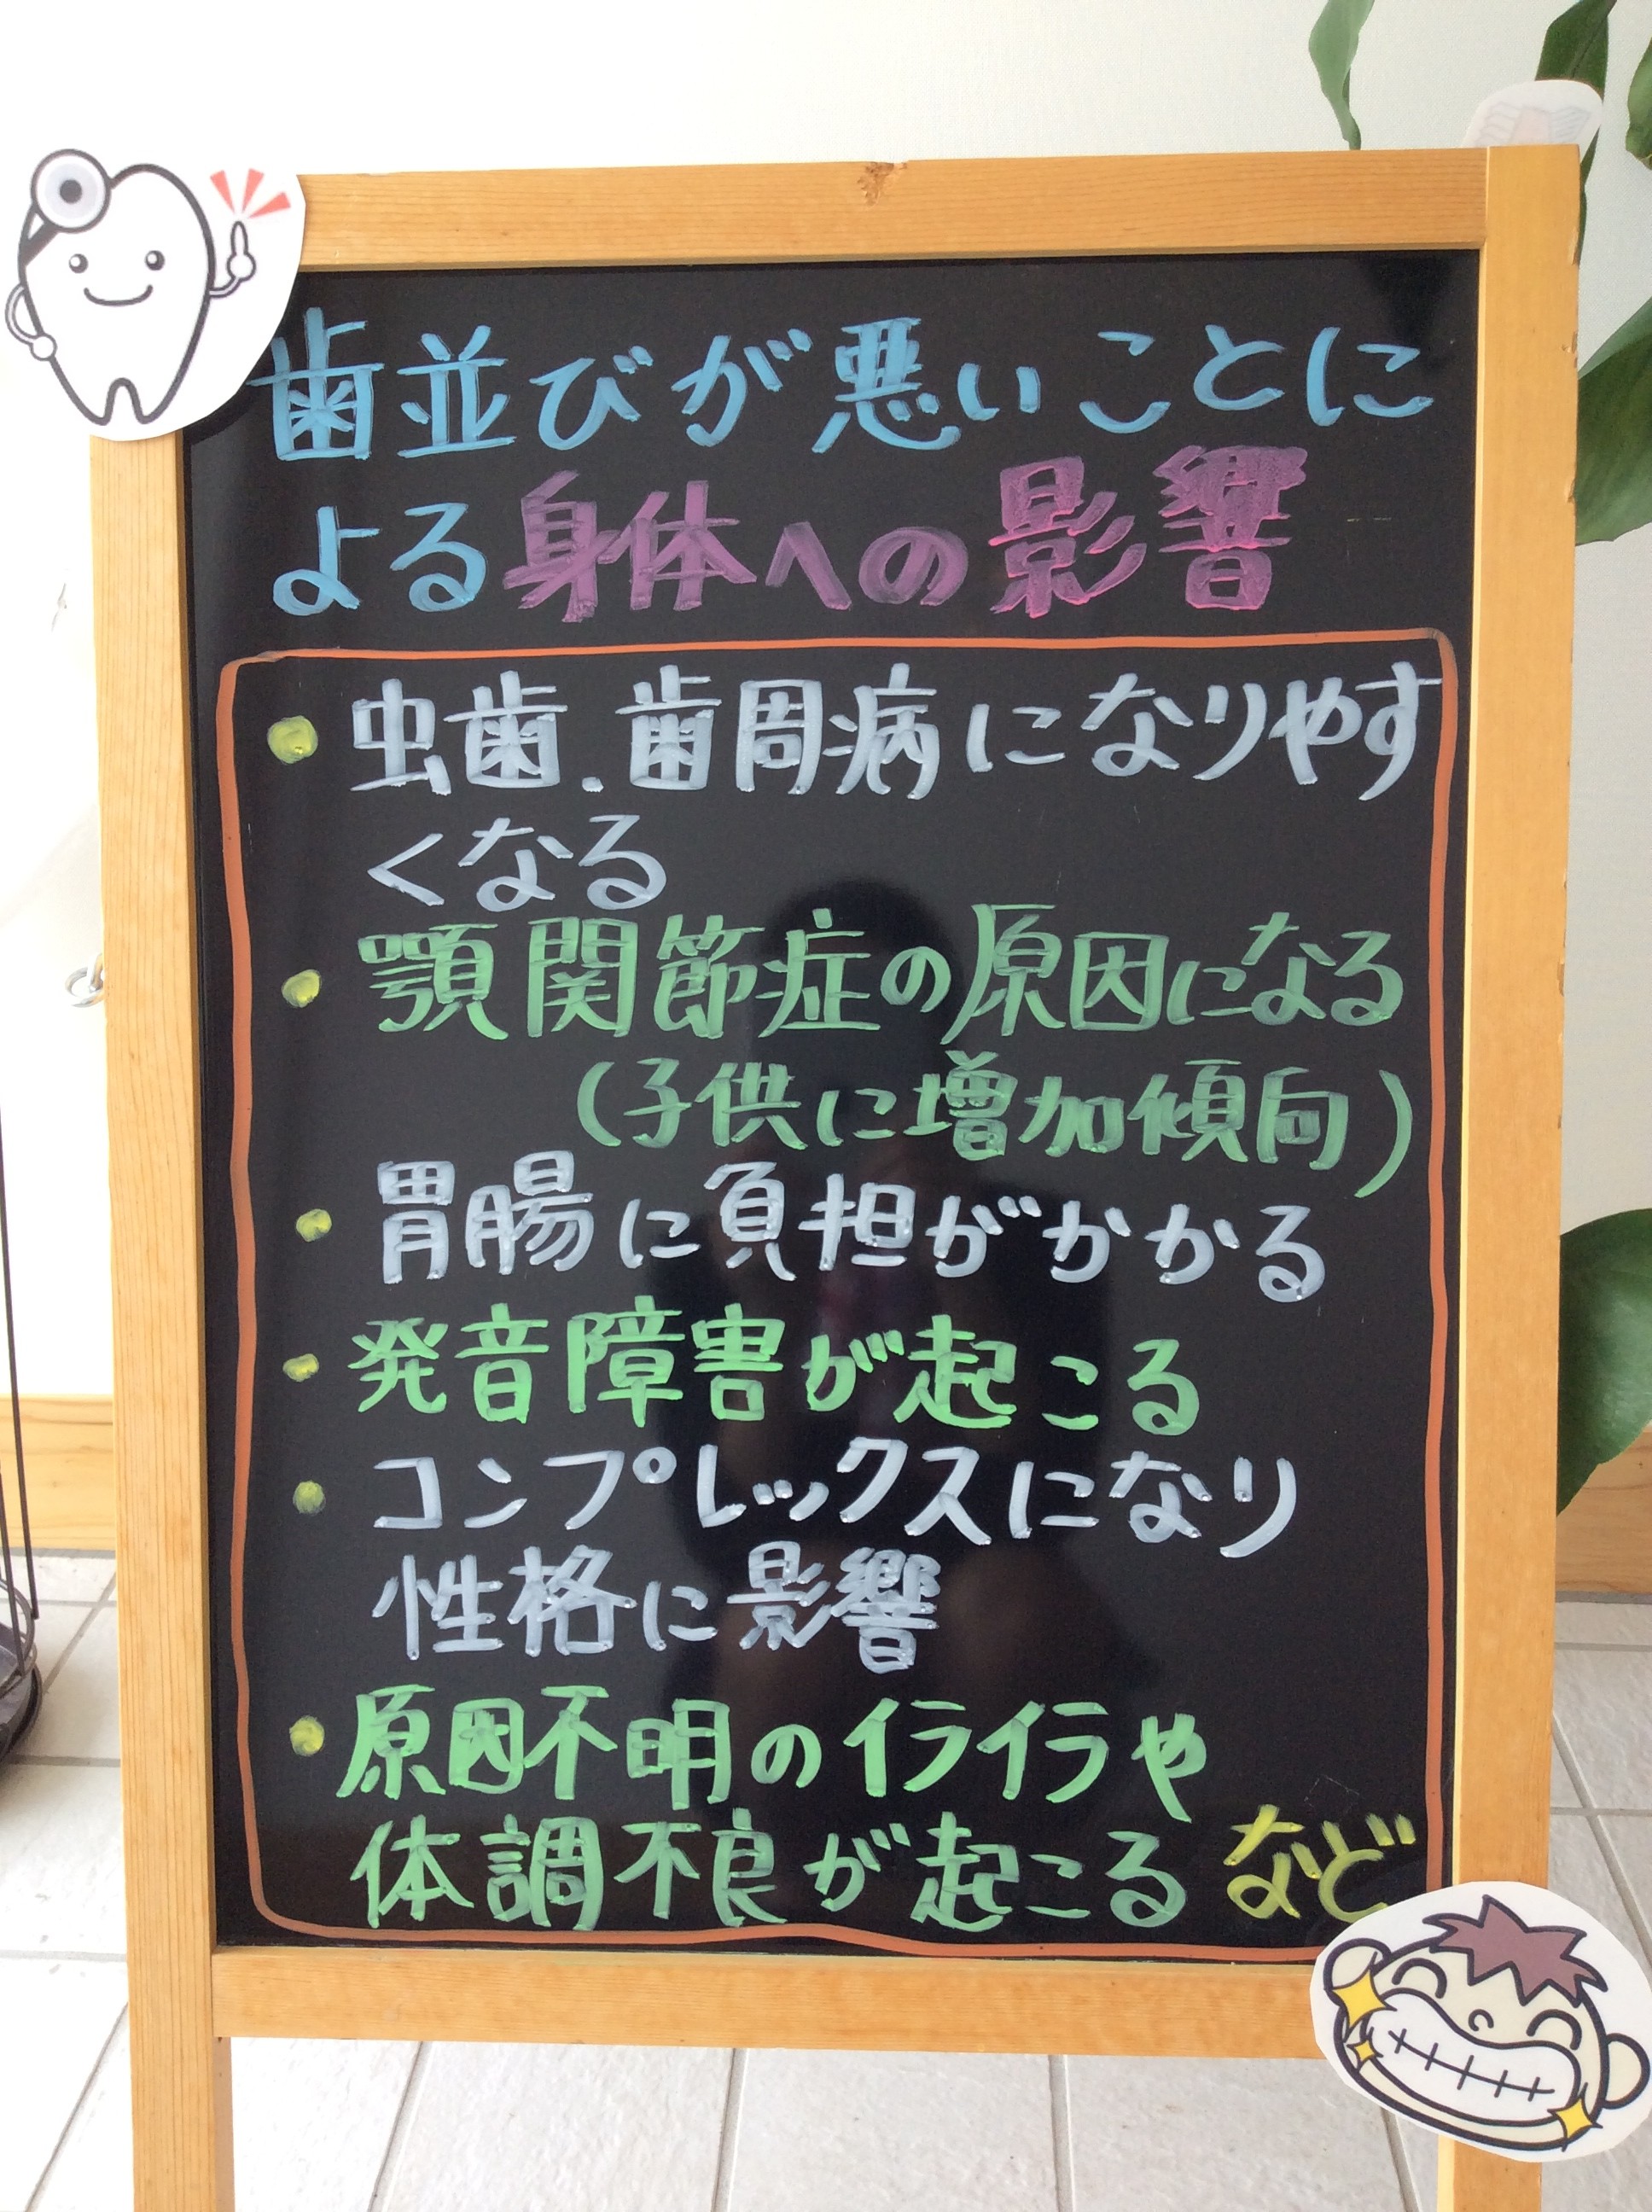 歯並びが悪いことに
よる身体への影響
・虫歯.歯周病になりやす
くなる
・顎関節症の原因になる
(子供に増加傾向)
・胃腸に負担がかかる
・発音障害が起こる
・コンプレックスになり
性格に影響
・原因不明のイライラや
体調不良が起こる など